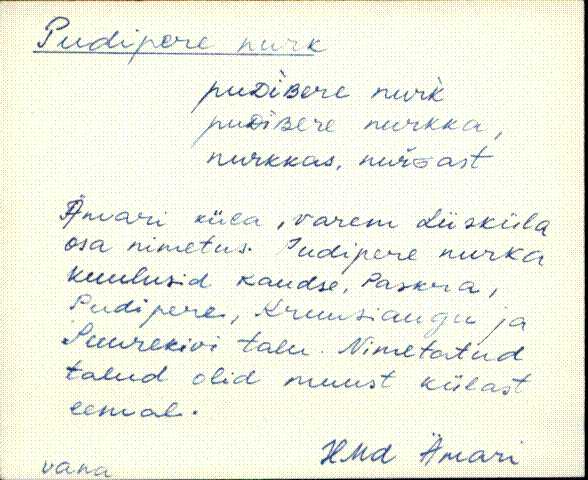 Pudipere nurk
puDiBere nurk̀
puDiBere nurkka,
nurkkas, nurGast
Ämari küla, varem Liisküla
osa nimetus. Pudipere nurka
kuulusid Kandse, Paskra,
Pudipere, Kruusiaugu ja
Suurekivi talu. Nimetatud
talud olid muust külast
eemal.
HMd Ämari
vana